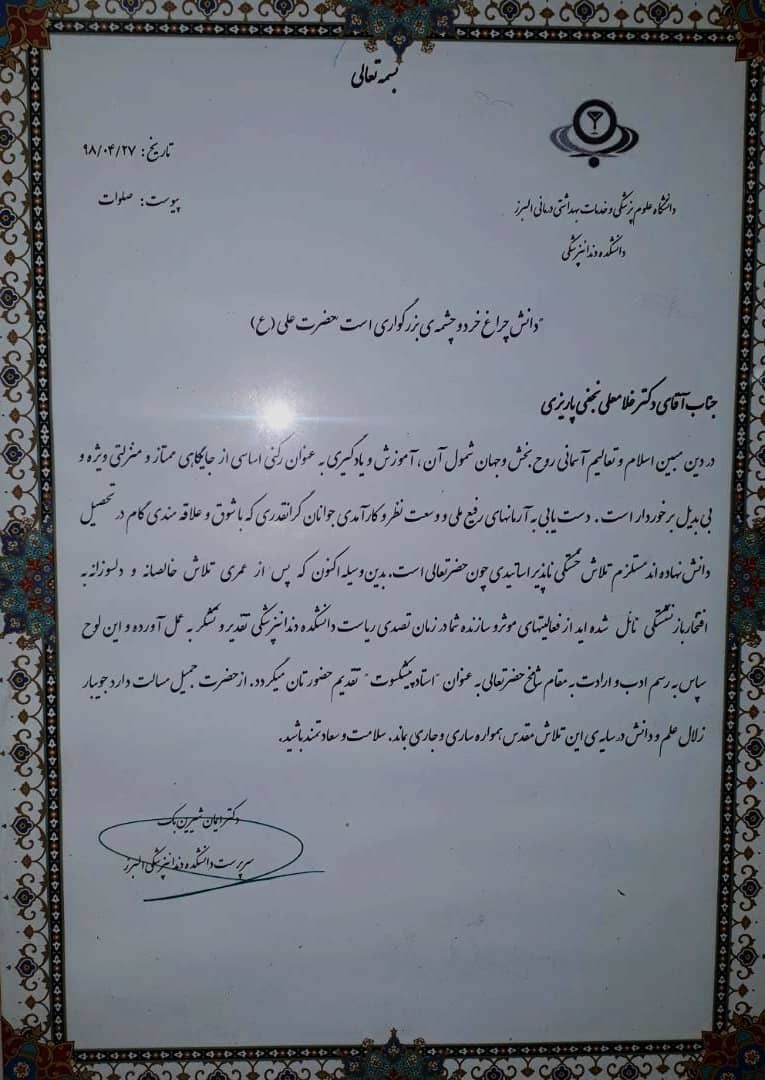 بسمه تعالی
تاریخ: ۹۸/۰۴/۲۷
پیوست: صلوات
دانشگاه علوم پزشکی و خدمات بهداشتی درمانی البرز
دانشکده دندانپزشکی
"دانش چراغ خرد و چشمه ی بزرگواری است "حضرت علی (ع)
جناب آقای دکتر غلامعلی نجفی پاریزی
در دین مبین اسلام و تعالیم آسمانی روح بخش و جهان شمول آن ، آموزش و یادگیری به عنوان رکنی اساسی از جایگاهی ممتاز و منزلتی ویژه و
بی بدیل برخوردار است . دست یابی به آرمانهای رفیع ملی و وسعت نظر و کارآمدی جوانان گرانقدری که با شوق و علاقه مندی گام در تحصیل
دانش نهاده اند مستلزم تلاش خستگی ناپذیر اساتیدی چون حضرتعالی است. بدین وسیله اکنون که پس از عمری تلاش خالصانه و دلسوزانه به
افتخار بازنشستگی نائل شده اید از فعالیتهای موثر و سازنده شما در زمان تصدی ریاست دانشکده دندانپزشکی تقدیر و تشکر به عمل آورده و این لوح
سپاس به رسم ادب و ارادت به مقام شامخ حضرتعالی به عنوان "استاد پیشکسوت" تقدیم حضورتان میگردد. از حضرت جمیل مسالت دارد جویبار
زلال علم و دانش در سایه ی این تلاش مقدس همواره ساری و جاری بماند. سلامت و سعادتمند باشید.
دکتر ایمان شیرین بک
سرپرست دانشکده دندانپزشکی البرز